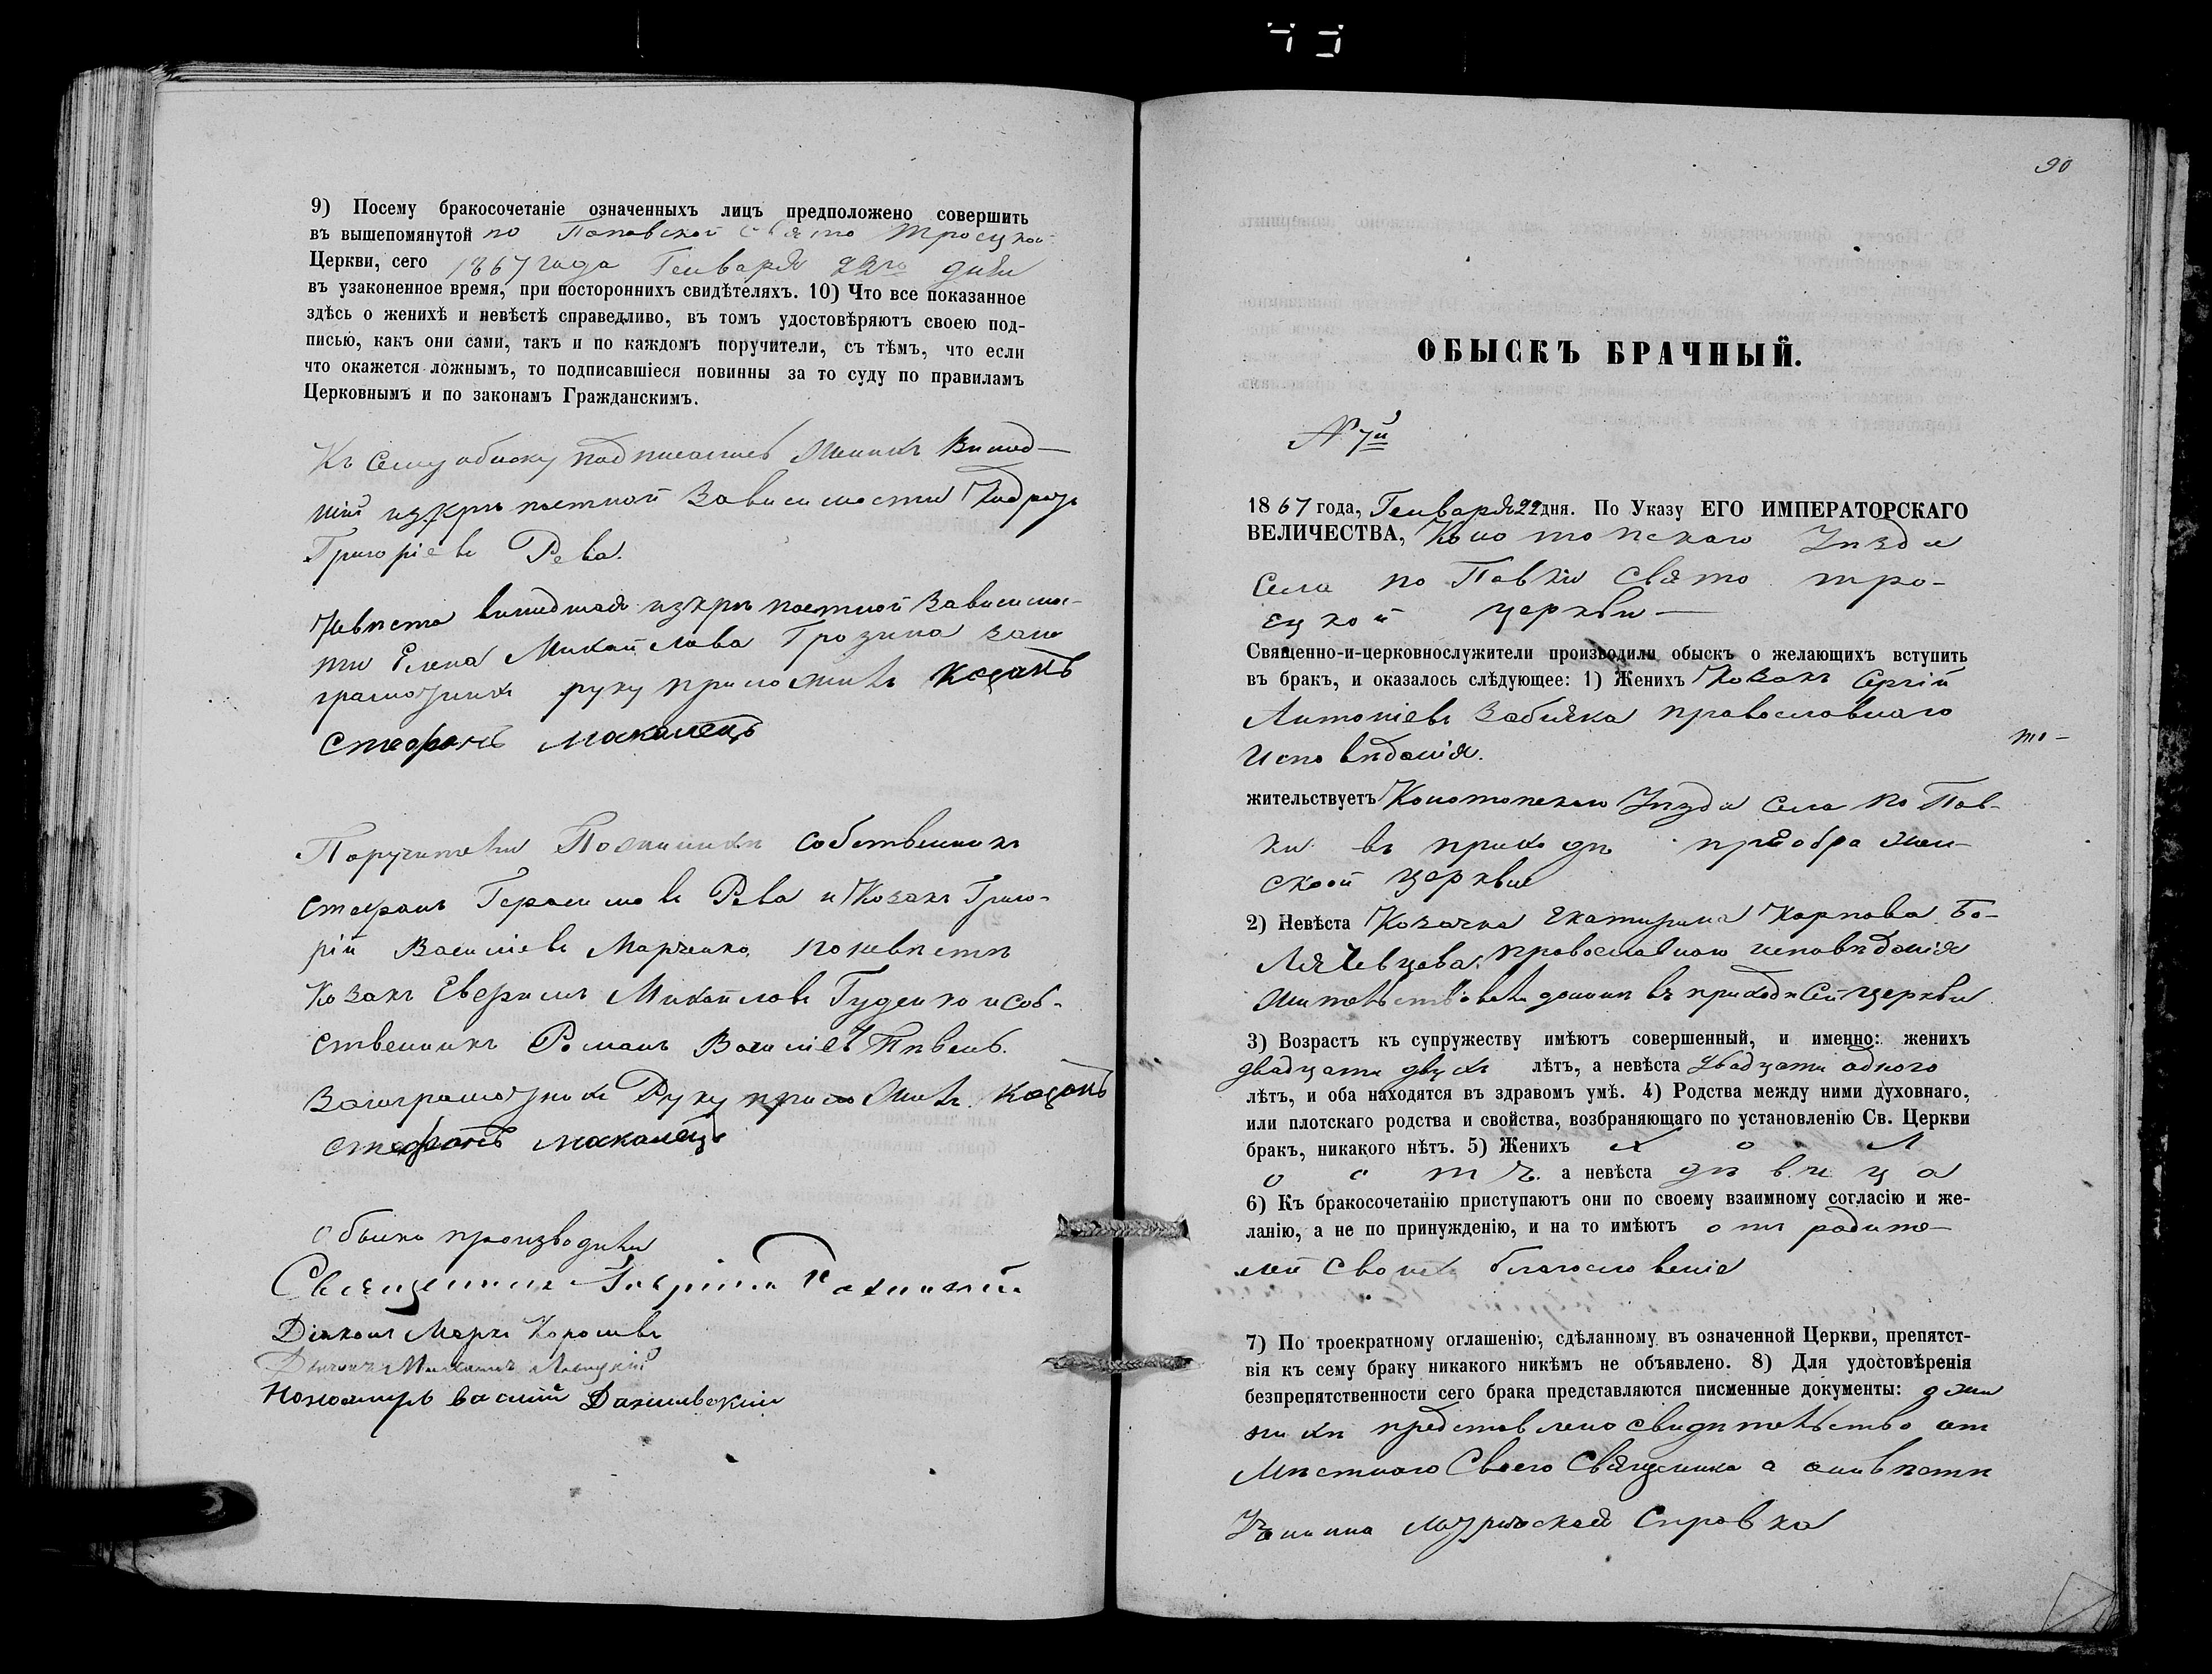 9) Посему бракосочетаніе означенныхъ лицъ предположено совершить
въ вышепомянутой по Поповской Свято Троецкой
Церкви, сего 1867 года Генваря 22го дня
въ узаконенное время, при постороннихъ свидѣтеляхъ. 10) Что все показанное
здѣсь о женихѣ и невѣстѣ справедливо, въ томъ удостовѣряютъ своею под-
писью, какъ они сами, такъ и по каждомъ поручители, съ тѣмъ, что если
что окажется ложнымъ, то подписавшіеся повинны за то суду по правиламъ
Церковнымъ и по законамъ Гражданскимъ.
Къ сему обыску подписались Женихъ Вишед-
шій изкрѣпостной Зависимости
Григоріевъ Рева.
Невѣста вишедшая изкрѣпостной Зависимо-
сти Елена Михайлова Грозина за не
грамотнихъ руку приложилъ козакъ
Стефанъ Макамецъ
Поручители По женихѣ собственникъ
Стефанъ Герасимовъ Рева и Козакъ Григо-
рій Василіевъ Марченко, поневѣстѣ
Козакъ Михайловъ Гуденко и соб-
ственникъ Романъ Василіевъ Пивень.
За неграмотнихъ Руку приложилъ козакъ
Стефанъ Макамецъ
Обыскъ производили
Священникъ Гавріилъ
Діаконъ Маркъ
Дьячокъ
Пономарь Василій Данилевскій
90
ОБЫСКЪ БРАЧНЫЙ.
№ 7й
1867 года, Генваря 22 дня. По Указу ЕГО ИМПЕРАТОРСКАГО
ВЕЛИЧЕСТВА, Конотопскаго Уѣзда
Села по Повки Свято тро-
ецкой церкви
Священно-и-церковнослужители производили обыскъ о желающихъ вступить
въ бракъ, и оказалось слѣдующее: 1) Женихъ Козакъ Сергій
Антоніевъ Забіяка православнаго
Исповѣданія.
жительствуетъ Конотопскаго Уѣзда села по Пов-
ки въ приходѣ преображен-
ской церкви
2) Невѣста Козачка Екатирина Карпова Бо-
лячевцева, православнаго исповѣданія
Жительствовала доныне въ приходѣ сей церкви
3) Возрастъ къ супружеству имѣютъ совершенный, и именно: женихъ
двадцати двухъ лѣтъ, а невѣста двадцати одного
лѣтъ, и оба находятся въ здравомъ умѣ. 4) Родства между ними духовнаго,
или плотскаго родства и свойства, возбраняющаго по установленію Св. Церкви
бракъ, никакого нѣтъ. 5) Женихъ х о л
о с т ъ. а невѣста дѣвица
6) Къ бракосочетанію приступаютъ они по своему взаимному согласію и же-
ланію, а не по принужденію, и на то имѣютъ отъ родите-
лей своихъ благословеніе
7) По троекратному оглашенію, сдѣланному въ означенной Церкви, препятст-
вія къ сему браку никакого никѣмъ не объявлено. 8) Для удостовѣренія
безпрепятственности сего брака представляются писменные документы: о же
нихѣ представлено свидѣтельство отъ
Мѣстнаго Своего Священника а оневѣстѣ
Учинина Справка